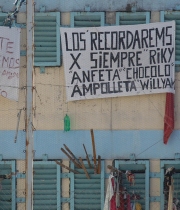 TE
MOS
LOS RECORDAREMS
X SIEMPRE "RIKY
"ANFETA" "CHOCOLO
AMPOLLETA WILLYA